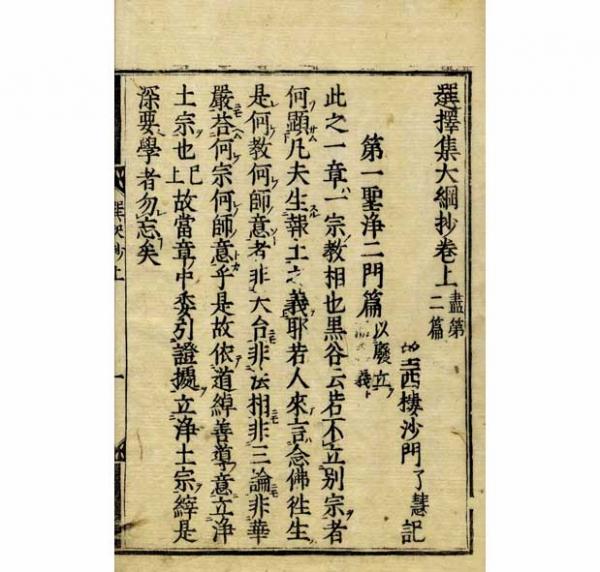 選擇集大綱抄卷上 盡第二篇
望西樓沙門了慧記
第一聖淨二門篇 以廢立義
此之一章一宗教相也黑谷云若不立別宗者
何顯凡夫生報土之義耶若人來言念佛徃生
是何教何師意者非天台非法相非三論非華
嚴荅何宗何師意乎是故依道綽善導意立淨
土宗也已上故當章中委引證據立淨土宗綽是
深要學者勿忘矣
一